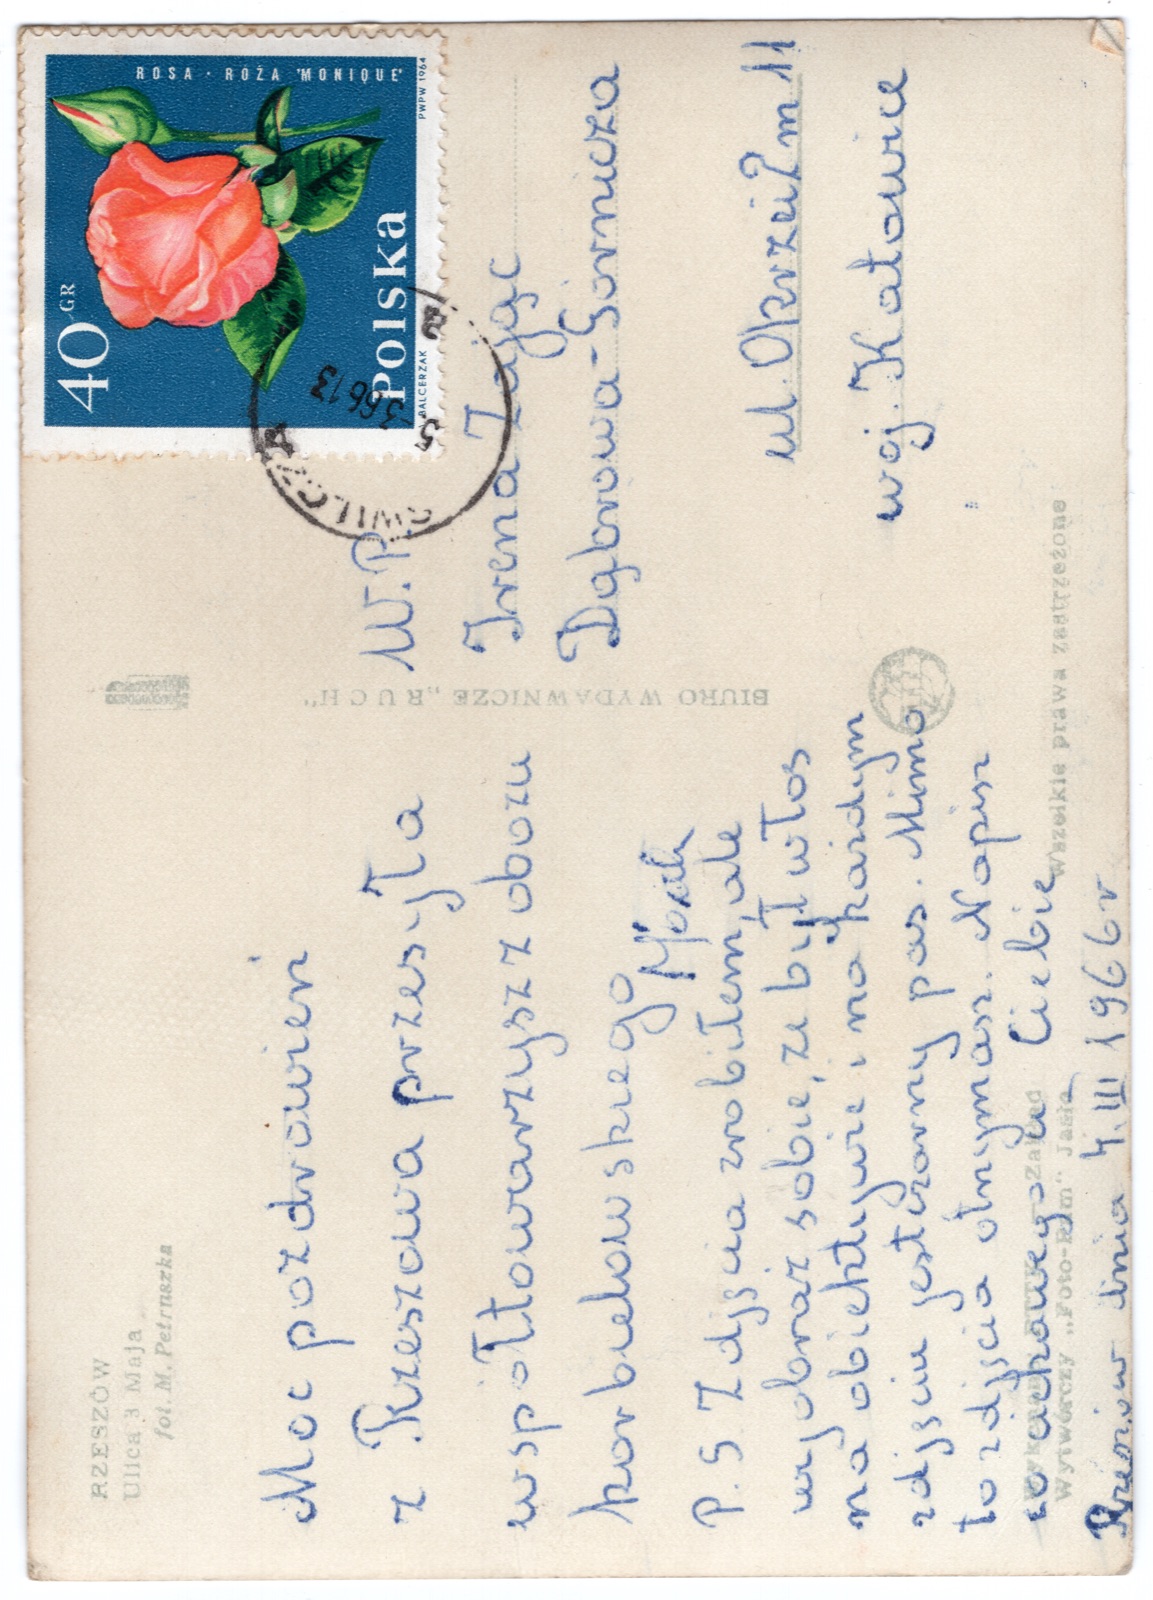 RZESZÓW
Ulica 3 Maja
fot. M. Petruszka
Moc pozdrowień
z Rzeszowa przesyła
współtowarzysz z obozu
korbielowskiego
P.S Zdjęcia zrobiłem, ale
wyobraź sobie, że był włos
na obiektywie i na każdym
zdjęciu jest czarny pas. Mimo
to zdjęcia otrzymasz. Napisz
co ciekawego u Ciebie
dnia 4.III 1966r
BIURO WYDAWNICZE „RUCH"
Wytwórczy „Foto-Ram"
Wszelkie prawa zastrzeżone
ROSA · RÓŻA 'MONIQUE'
40 GR
Polska
BALCERZAK
PWPW 1964
ŚWILCZA
W.P.
Irena Zając
Dąbrowa-Górnicza
ul. Okrzei 11
woj. Katowice